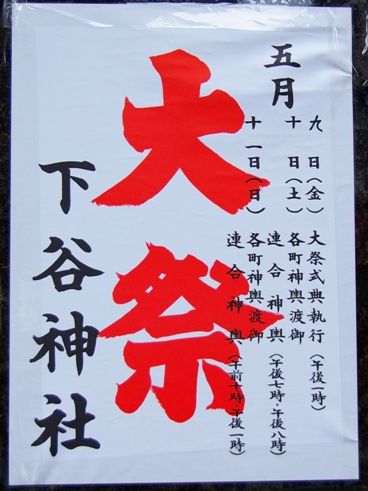 五月
九日(金) 大祭式典執行(午後一時)
十日(土) 各町神輿渡御
連合神輿(午後七時・午後八時)
十一日(日) 各町神輿渡御
連合神輿(午前十時・午後一時)
大祭
下谷神社